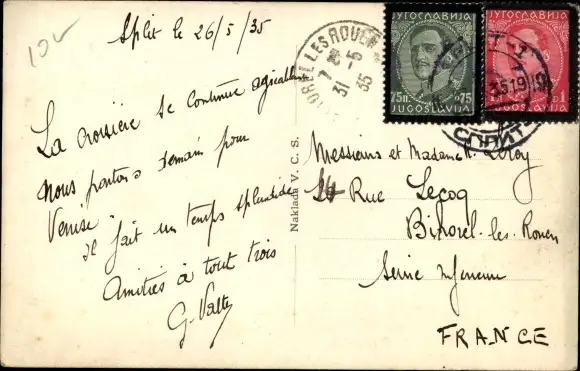 10-
Split le 26/5/35
La croisière se continue agréablement
Nous partons demain pour
Venise
il fait un temps splendide
Amitiés à tout trois
G. Valte
BIHOREL LES ROUEN
7
31 -5
35
ЈУГОСЛАВИЈА
75п. 75
JUGOSLAVIJA
ЈУГОСЛАВИЈА
1
JUGOSLAVIJA
SPLIT-1
СПЛИТ
Naklada V. C. S.
Messieurs et Madame Leroy
14 Rue Lecoq
Bihorel-les-Rouen
Seine Inférieure
FRANCE